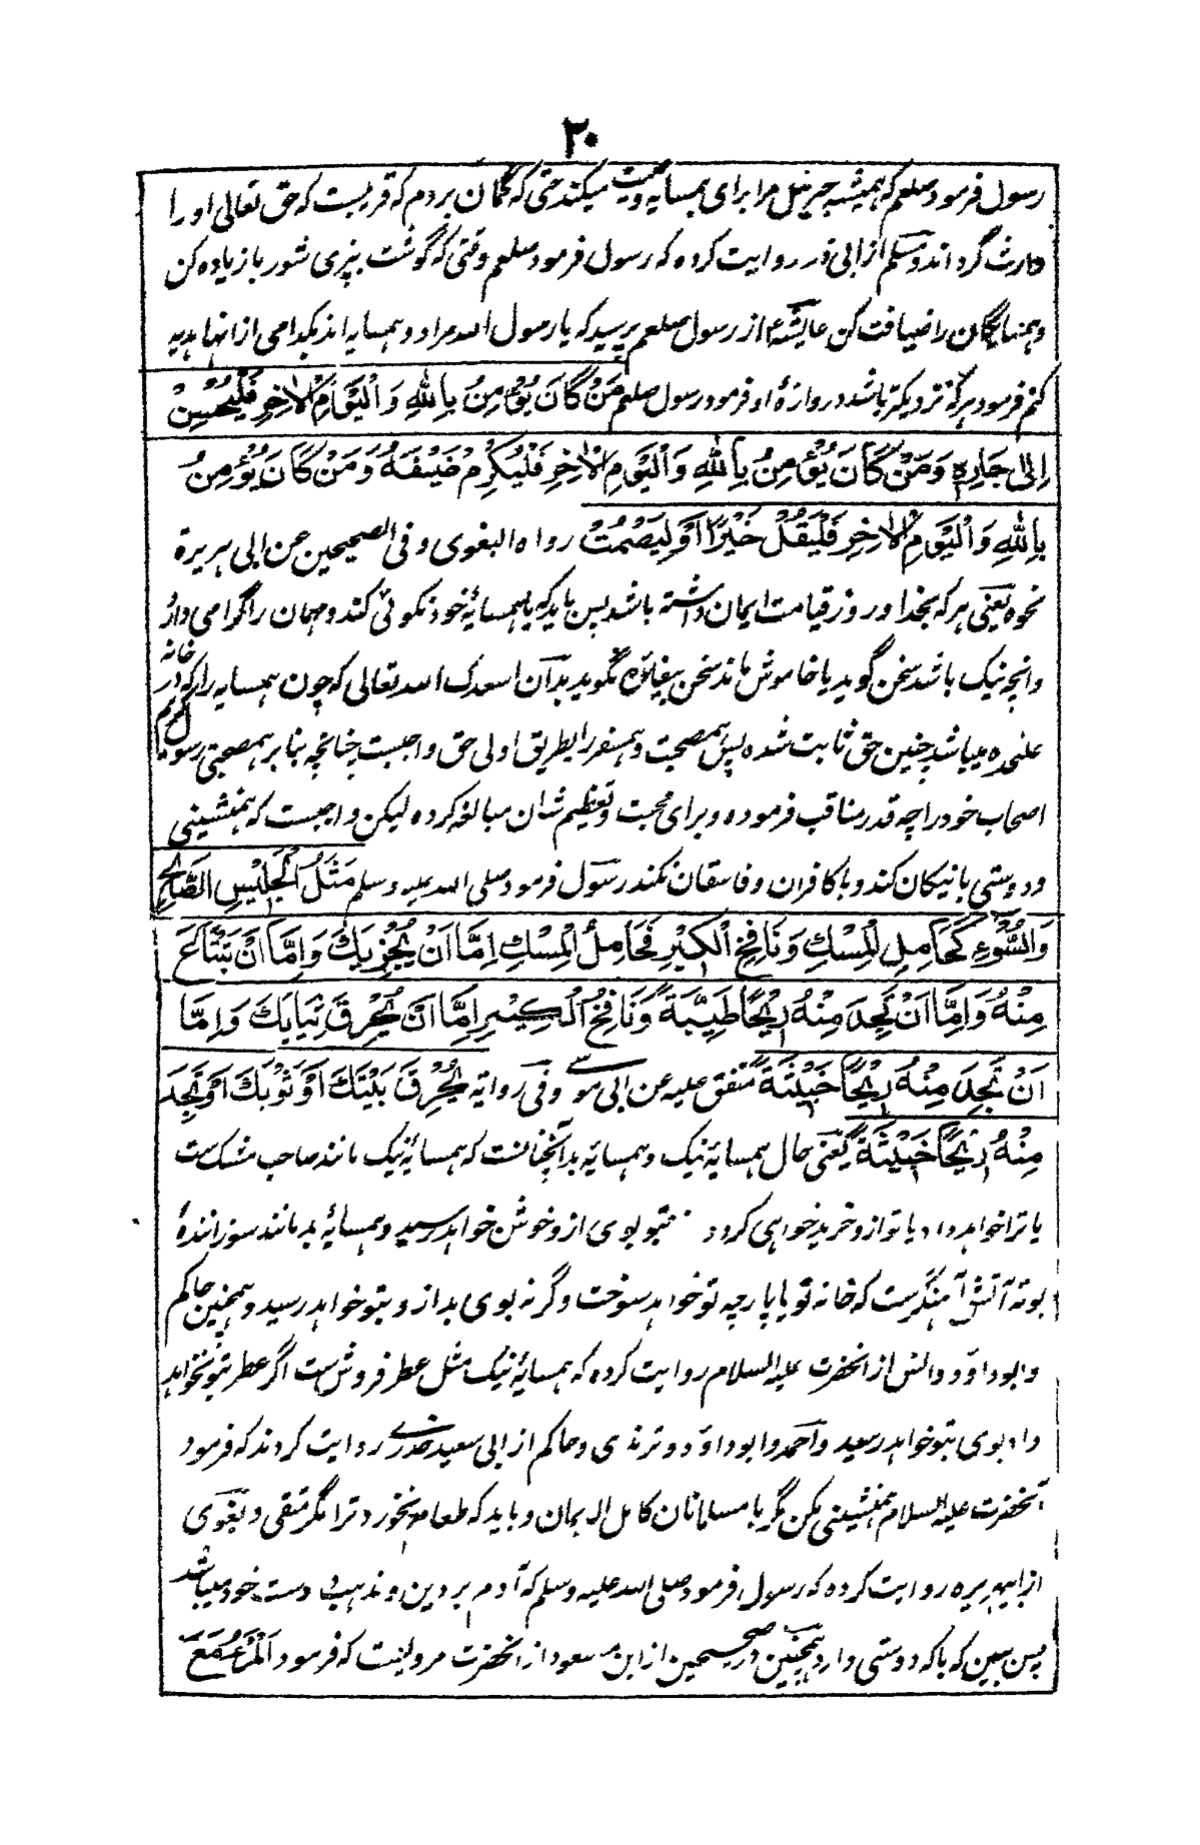 ۳۰
رسول فرمود صلعم که همیشه جبرئیل مرا برای همسایه وصیت میکند حتی که گمان بردم که قریبست که حق تعالی او را
وارث گرداند و مسلم از ابی ذر روایت کرده که رسول فرمود صلعم وقتی که گوشت بپزی شوربا زیاده کن
و همسایگان را ضیافت کن عایشه از رسول صلعم پرسید که یا رسول الله مرا دو همسایه اند بکدامی از انها هدیه
کنم فرمود هر که نزدیکتر باشد دروازهٔ او فرمود رسول صلعم مَنْ كَانَ يُؤْمِنُ بِاللهِ وَالْيَوْمِ الْاٰخِرِ فَلْيُحْسِنْ
اِلٰى جَارِهٖ وَمَنْ كَانَ يُؤْمِنُ بِاللهِ وَالْيَوْمِ الْاٰخِرِ فَلْيُكْرِمْ ضَيْفَهُ وَمَنْ كَانَ يُؤْمِنُ
بِاللهِ وَالْيَوْمِ الْاٰخِرِ فَلْيَقُلْ خَيْرًا اَوْ لِيَصْمُتْ رواه البغوی و فی الصحیحین عن ابی هریرة
نحوه یعنی هر که بخدا و روز قیامت ایمان داشته باشد پس باید که با همسایهٔ خود نکوئی کند و مهمان را گرامی دارد
وانچه نیک باشد سخن گوید یا خاموش ماند سخن بیفائده نگوید بدان اسعدک الله تعالی که چون همسایه را که در خانه
علٰحده میباشد چنین حق ثابت شده پس هم صحبت و همسفر را بطریق اولی حق واجبست چنانچه بنا بر هم صحبتی رسول کریم
اصحاب خود را چه قدر مناقب فرموده و برای محبت و تعظیم شان مبالغه کرده لیکن واجبست که همنشینی
و دوستی با نیکان کند و با کافران و فاسقان نکند رسول فرمود صلی الله علیه وسلم مَثَلُ الْجَلِيْسِ الصَّالِحِ
وَالسُّوْءِ كَحَامِلِ الْمِسْكِ وَنَافِخِ الْكِيْرِ فَحَامِلُ الْمِسْكِ اِمَّا اَنْ يُجْزِيَكَ وَاِمَّا اَنْ تَبْتَاعَ
مِنْهُ وَاِمَّا اَنْ تَجِدَ مِنْهُ رِيْحًا طَيِّبَةً وَنَافِخُ الْكِيْرِ اِمَّا اَنْ يُحْرِقَ ثِيَابَكَ وَاِمَّا
اَنْ تَجِدَ مِنْهُ رِيْحًا خَبِيْثَةً متفق علیه عن ابی موسی و فی روایة يُحْرِقَ بَيْتَكَ اَوْ ثَوْبَكَ اَوْ تَجِدَ
مِنْهُ رِيْحًا خَبِيْثَةً یعنی حال همسایهٔ نیک و همسایهٔ بد آنچنانست که همسایهٔ نیک مانند صاحب مشک ست
یا ترا خواهد داد یا تو ازو خرید خواهی کرد و بتو بوی ازو خوش خواهد رسید و همسایهٔ بد مانند سوزانندهٔ
بوته آتش آهنگرست که خانه تو یا پارچه تو خواهد سوخت و گرنه بوی بد ازو بتو خواهد رسید و همچنین حاکم
و ابو داود و انس از انحضرت علیه السلام روایت کرده که همسایهٔ نیک مثل عطر فروش ست اگر عطر بتو نخواهد
داد بوی بتو خواهد رسید و احمد و ابو داود و ترمذی و حاکم از ابی سعید خدری روایت کردند که فرمود
آنحضرت علیه السلام همنشینی مکن مگر با مسلمانان کامل الایمان و باید که طعام نخورد ترا مگر متقی و بغوی
از ابیهریره روایت کرده که رسول فرمود صلی الله علیه وسلم که آدم بر دین و مذهب دوست خود میباشد
پس ببین که با که دوستی دارد همچنین در صحیحین از ابن مسعود از انحضرت مرویست که فرمود اَلْمَرْءُ مَعَ